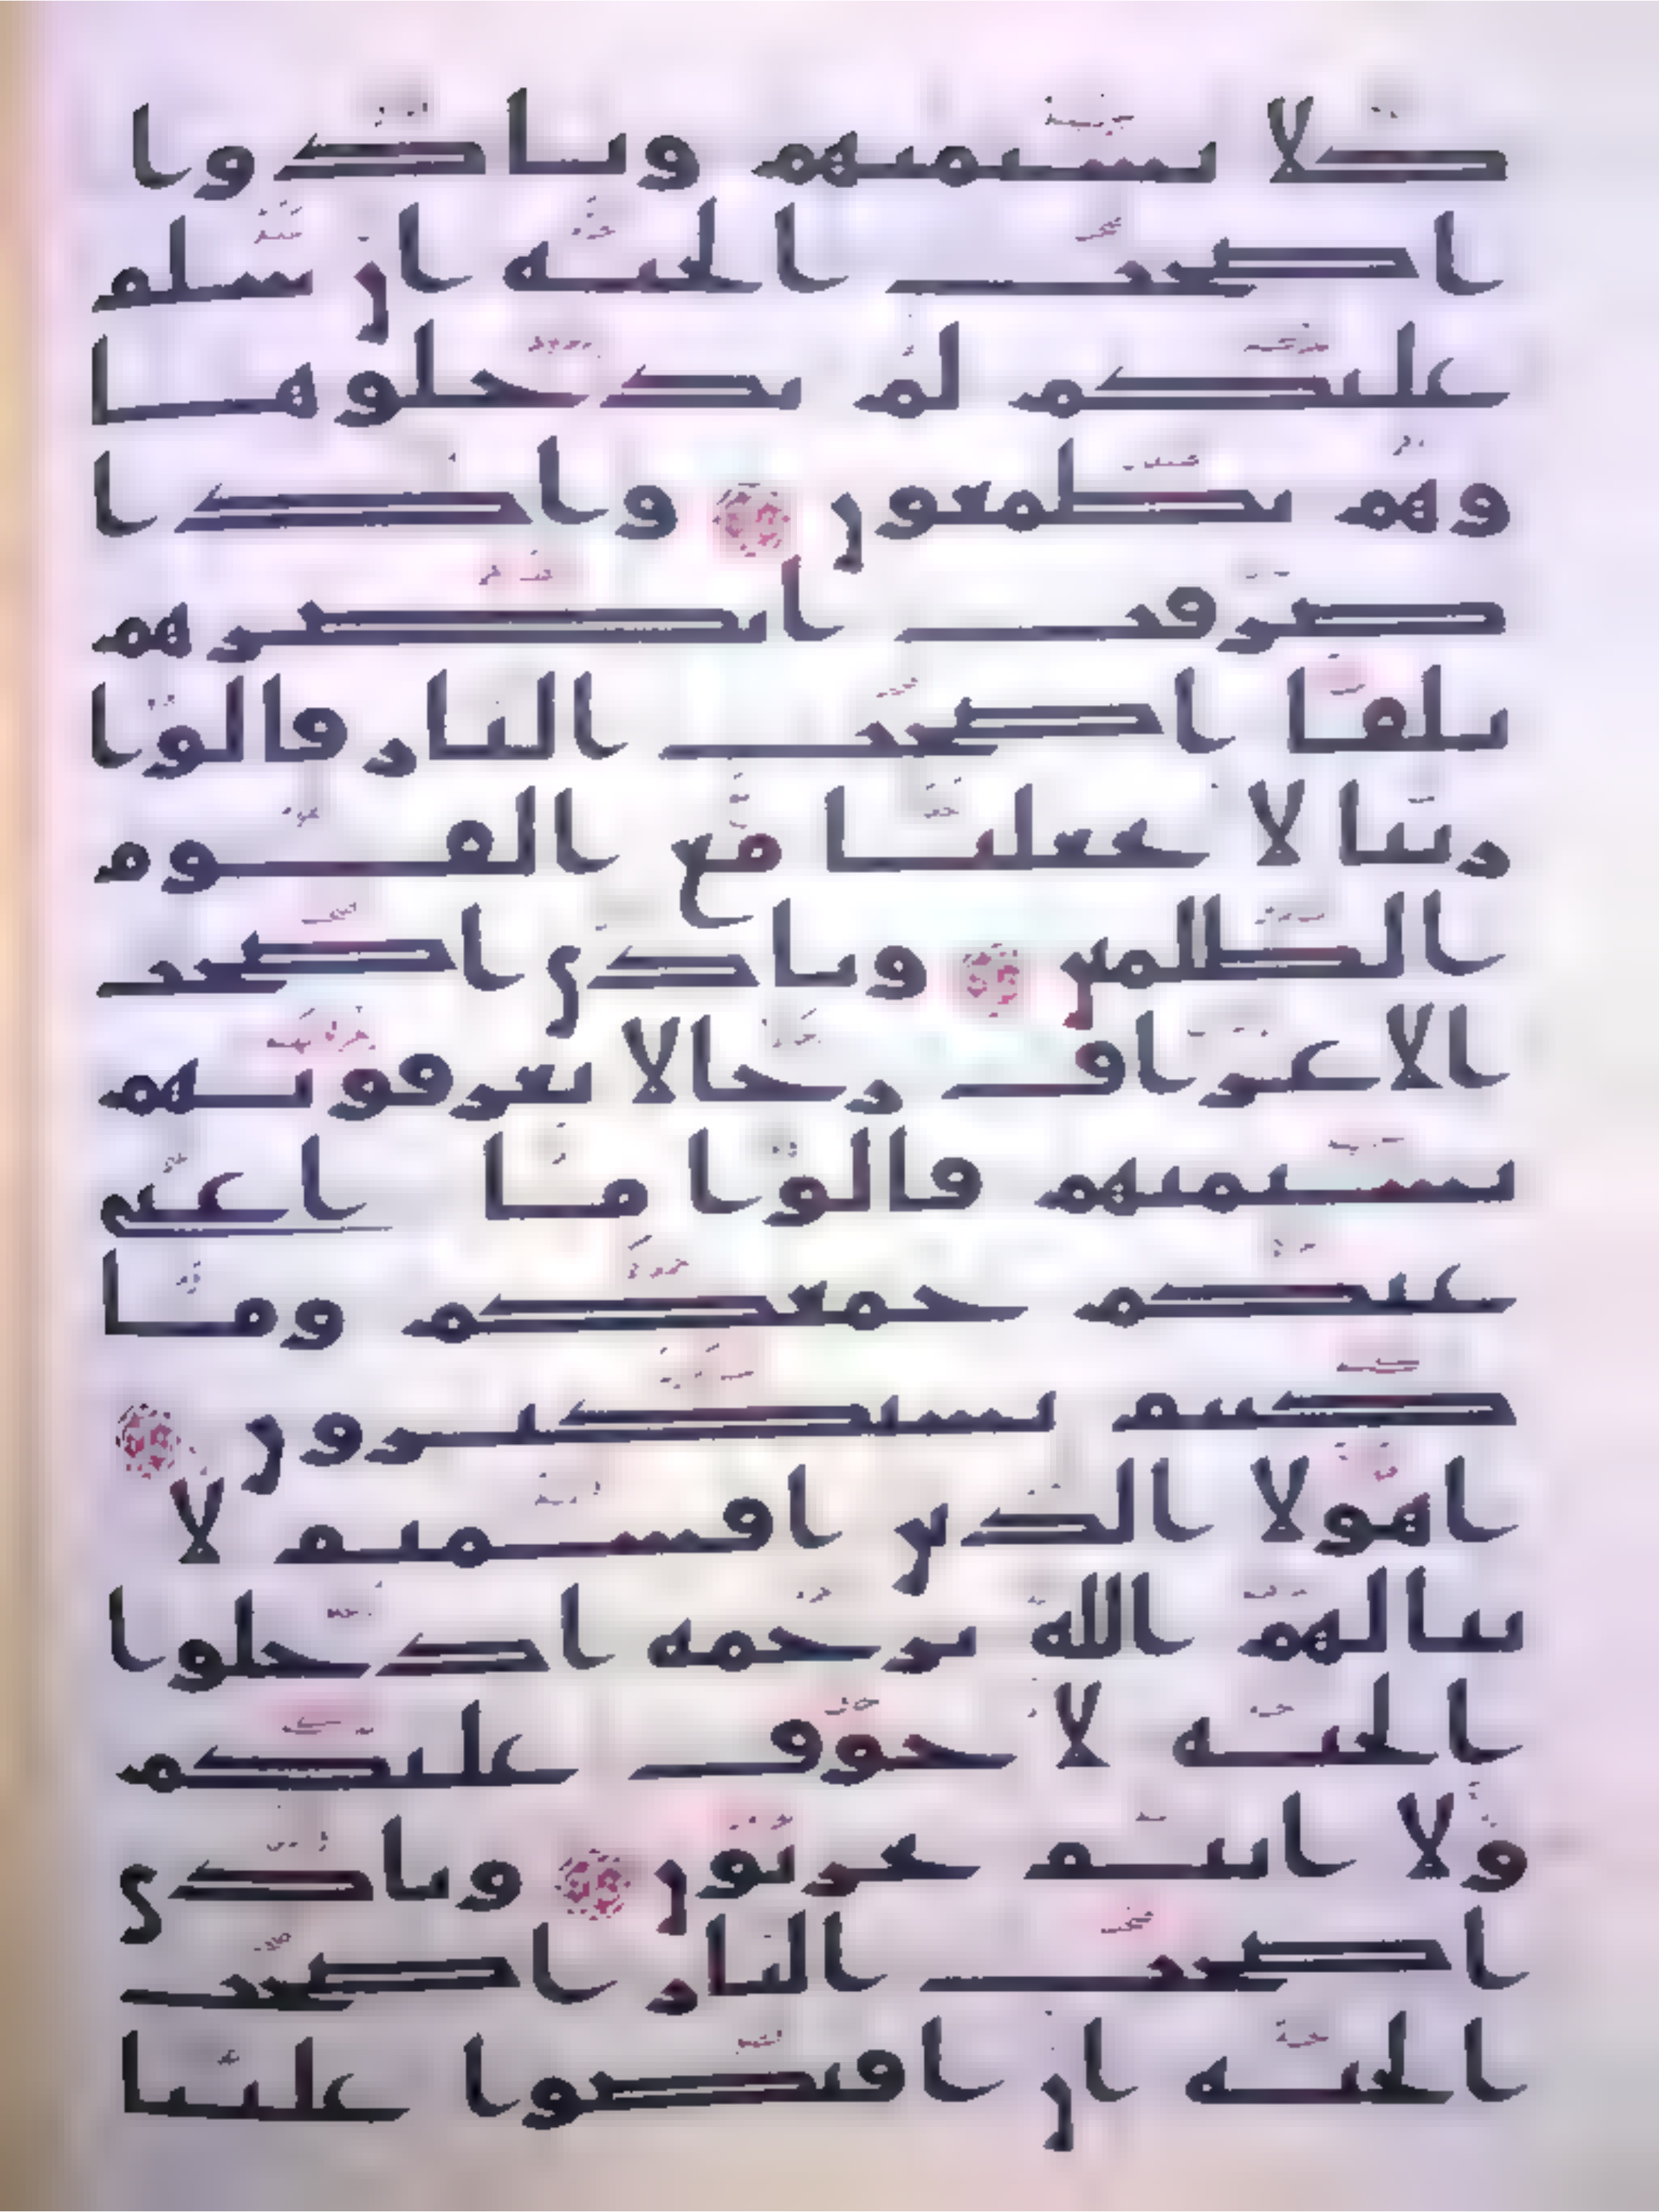 كلا بسيميهم ونادوا
اصحب الجنة ان سلم
عليكم لم يدخلوها
وهم يطمعون واذا
صرفت ابصرهم
تلقا اصحب النار قالوا
ربنا لا تجعلنا مع القوم
الظلمين ونادى اصحب
الاعراف رجالا يعرفونهم
بسيميهم قالوا ما اغنى
عنكم جمعكم وما
كنتم تستكبرون
اهولا الذين اقسمتم لا
ينالهم الله برحمة ادخلوا
الجنة لا خوف عليكم
ولا انتم تحزنون ونادى
اصحب النار اصحب
الجنة ان افيضوا علينا